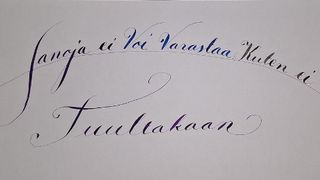 Sanoja ei Voi Varastaa Kuten ei
Tuultakaan